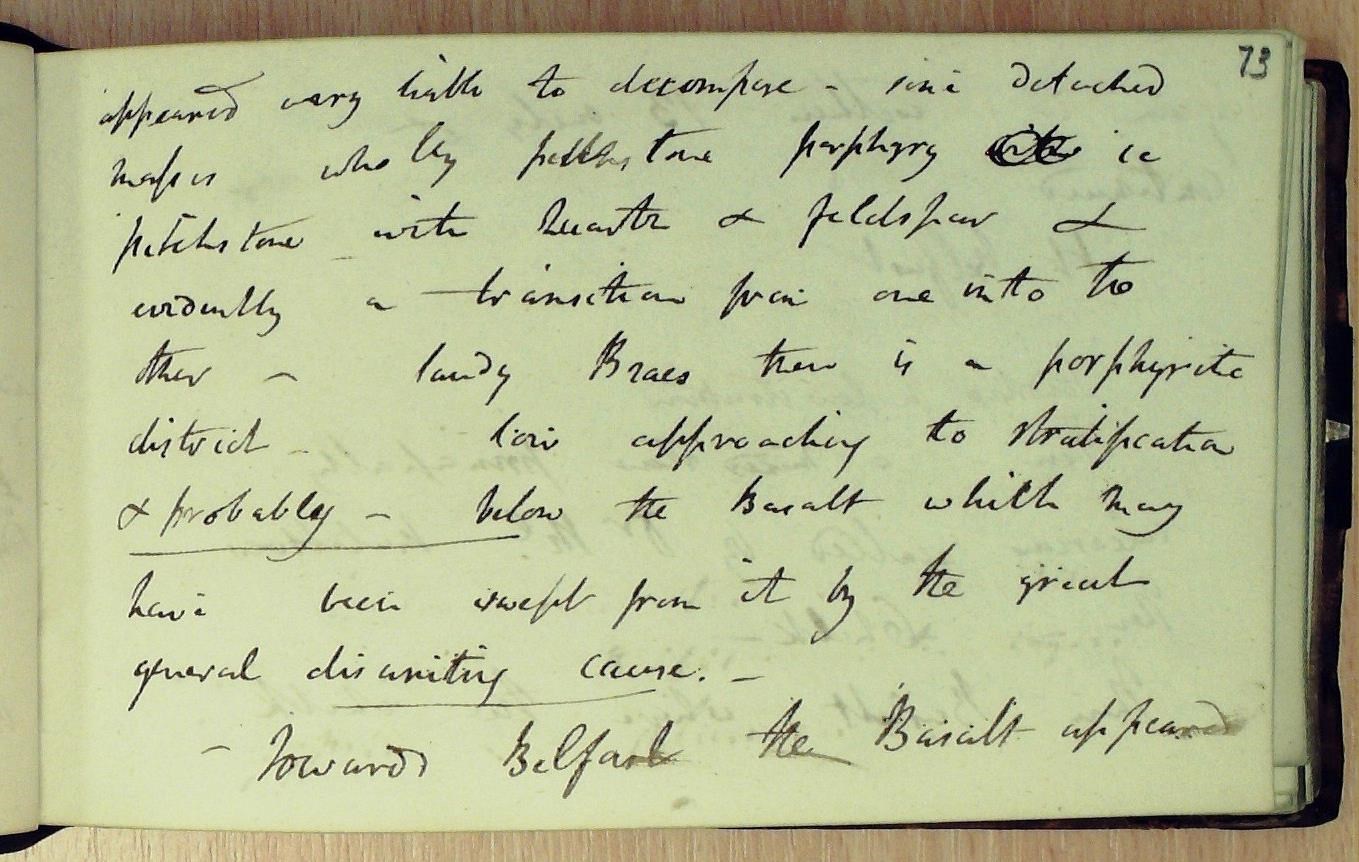 73
appeared very liable to decompose - some detached
masses wholly pitchstone porphyry ie
pitchstone with Quartz & feldspar &
evidently a transition from one into the
other - Sandy Braes there is a porphyritic
district - approaching to stratification
& probably - below the Basalt which may
have been swept from it by the great
general disuniting cause. -
- Towards Belfast the Basalt appeared